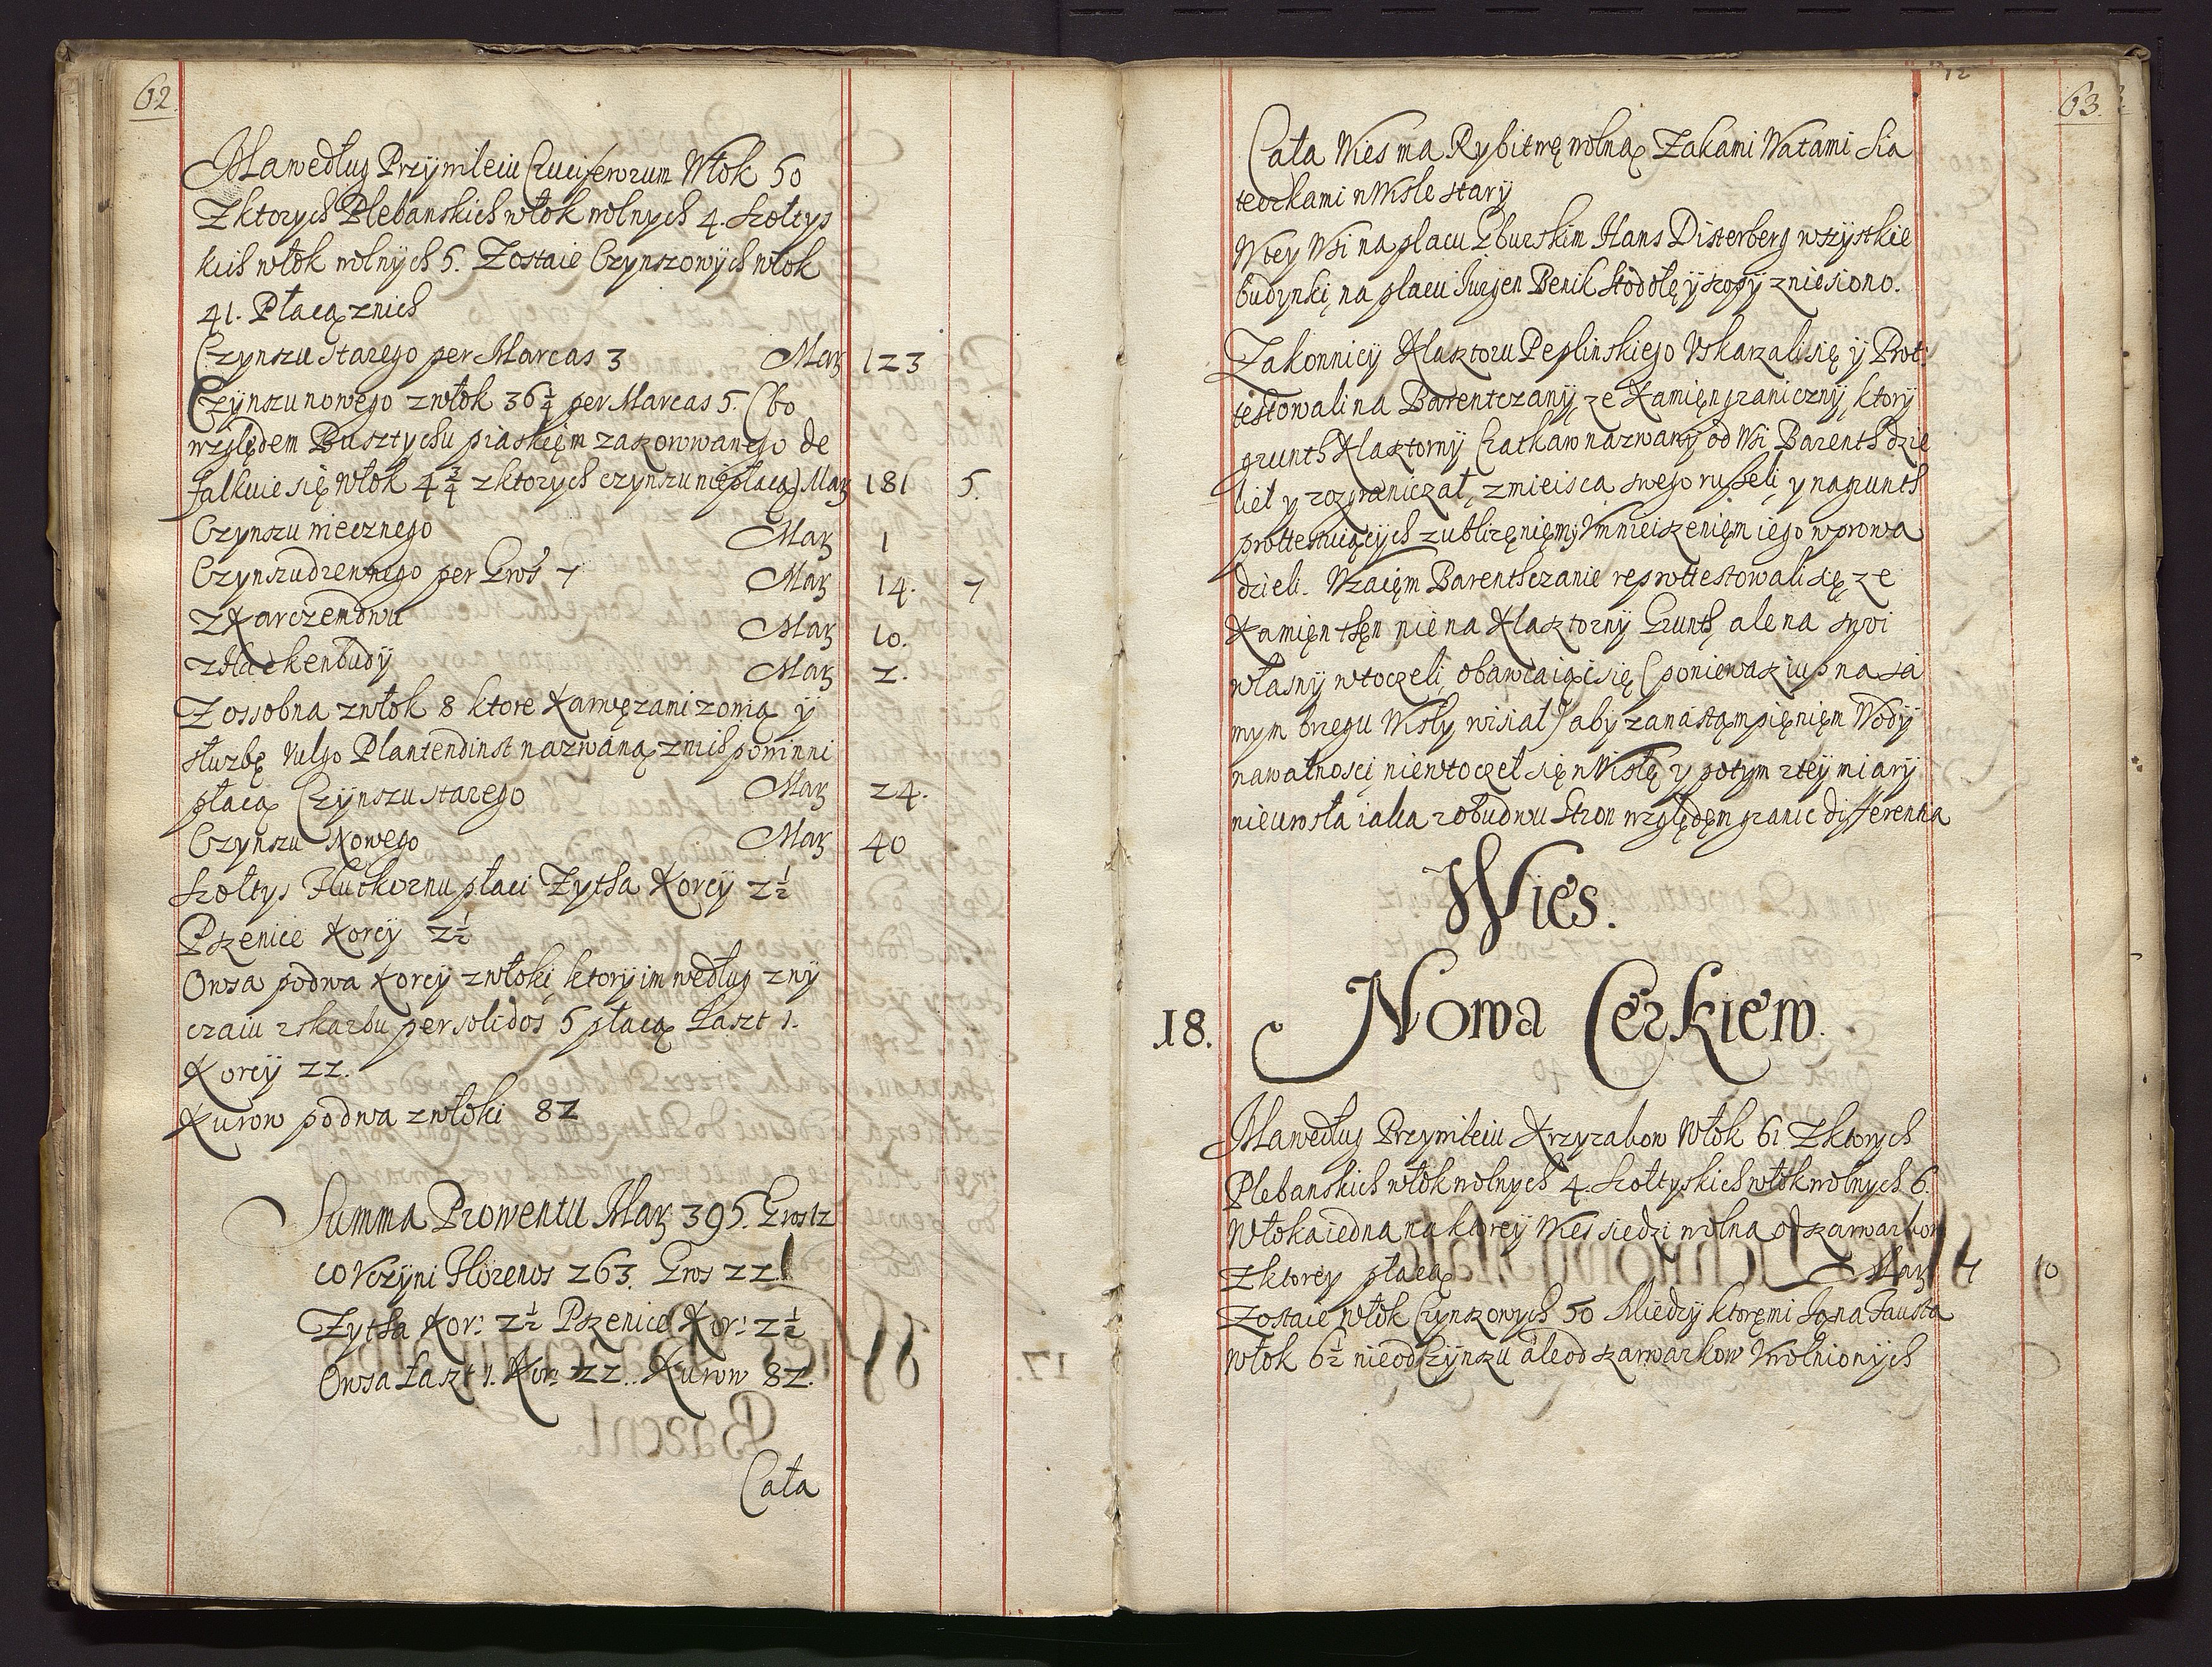 62.
Ma według Przywileiu Cruciferorum Włok 50
Z ktorych Plebanskich włok wolnych 4. Szołtys
kich włok wolnych 5. Zostaie Czynszowych włok
41. Płacą z nich
Czynszu starego per Marcas 3 Mar 123
Czynszu nowego z włok 36 1/4 per Marcas 5. (bo
względem Busztychu piaskiem zasorowanego de
falkuie się włok 4 3/4 z ktorych czynszu nie płacą) Mar 181 5.
Czynszu miecznego Mar 1
Czynszu drewnego per Gros 7 Mar 14. 7
Z Karczem dwu Mar 10.
z Hackenbudy Mar 2.
Z ossobna z włok 8 ktore Karwęzami zonią y
służbę vulgo Plantendinst nazwaną z nich powinni
płacą Czynszu starego Mar 24.
Czynszu Nowego Mar 40
Szołtys Fluthkornu płaci Zytha Korcy 2 1/2
Pszenice Korcy 2 1/2
Owsa po dwa Korcy z włoki, ktory im według zwy
czaiu z skarbu per solidos 5 płacą Łaszt 1.
Korcy 22.
Kurow po dwa z włoki 82
Summa Prowentu Mar 395. Gros 12
co vczyni Florenos 263. Gros 22.
Zytha Kor: 2 1/2 Pszenice Kor: 2 1/2
Owsa Łaszt 1. Kor: 22. Kurow 82.
Cała
63.
Cała Wies ma Rybitwę wolną Zakami Watami Sia
teczkami w Wisle stary
W tey Wsi na placu Gburskim Hans Disterberg wszystkie
budynki, na placu Jurgen Benik stodołę y szopy zniesiono.
Zakonnicy Klasztoru Peplinskiego Vskarzali się y Prot:
testowali na Barentczany, ze Kamięn graniczny, ktory
grunth Klasztorny Czatkaw nazwany od Wsi Barenth dzie
lieł y rozgraniczał, z mieisca swego ruszeli, y na grunth
prottestuiących z ublizęnięm y Vmnieiszenięm iego wprowa
dzieli. Vzaięm Barenthczanie reprottestowali się, ze
Kamięn thęn nie na Klasztorny Grunth, ale na swoi
własny wtoczeli, obawiaiąc się (poniewasz iusz na sa
mym brzegu Wisły wisiał) aby za nastąmpięnięm Wody
nawałnosci, nie wtoczeł się w Wisłę, y potym z tey miary
nie urosła iaka z obudwu Stron względęm granic differentia
Wies.
18. Nowa Cerkiew.
Ma według Przywileiu Krzyzakow Włok 61 Z ktorych
Plebanskich włok wolnych 4. Szołtyskich włok wolnych 6.
Włoka iedna na ktorey Wies siedzi wolna od szarwarkow
Z ktorey płacą Mar 7 10
Zostaie włok Czynszowych 50 Miedzy ktoręmi Jana Fausta
włok 6 1/2 nie od Czynszu ale od szarwarkow Vwolnionych